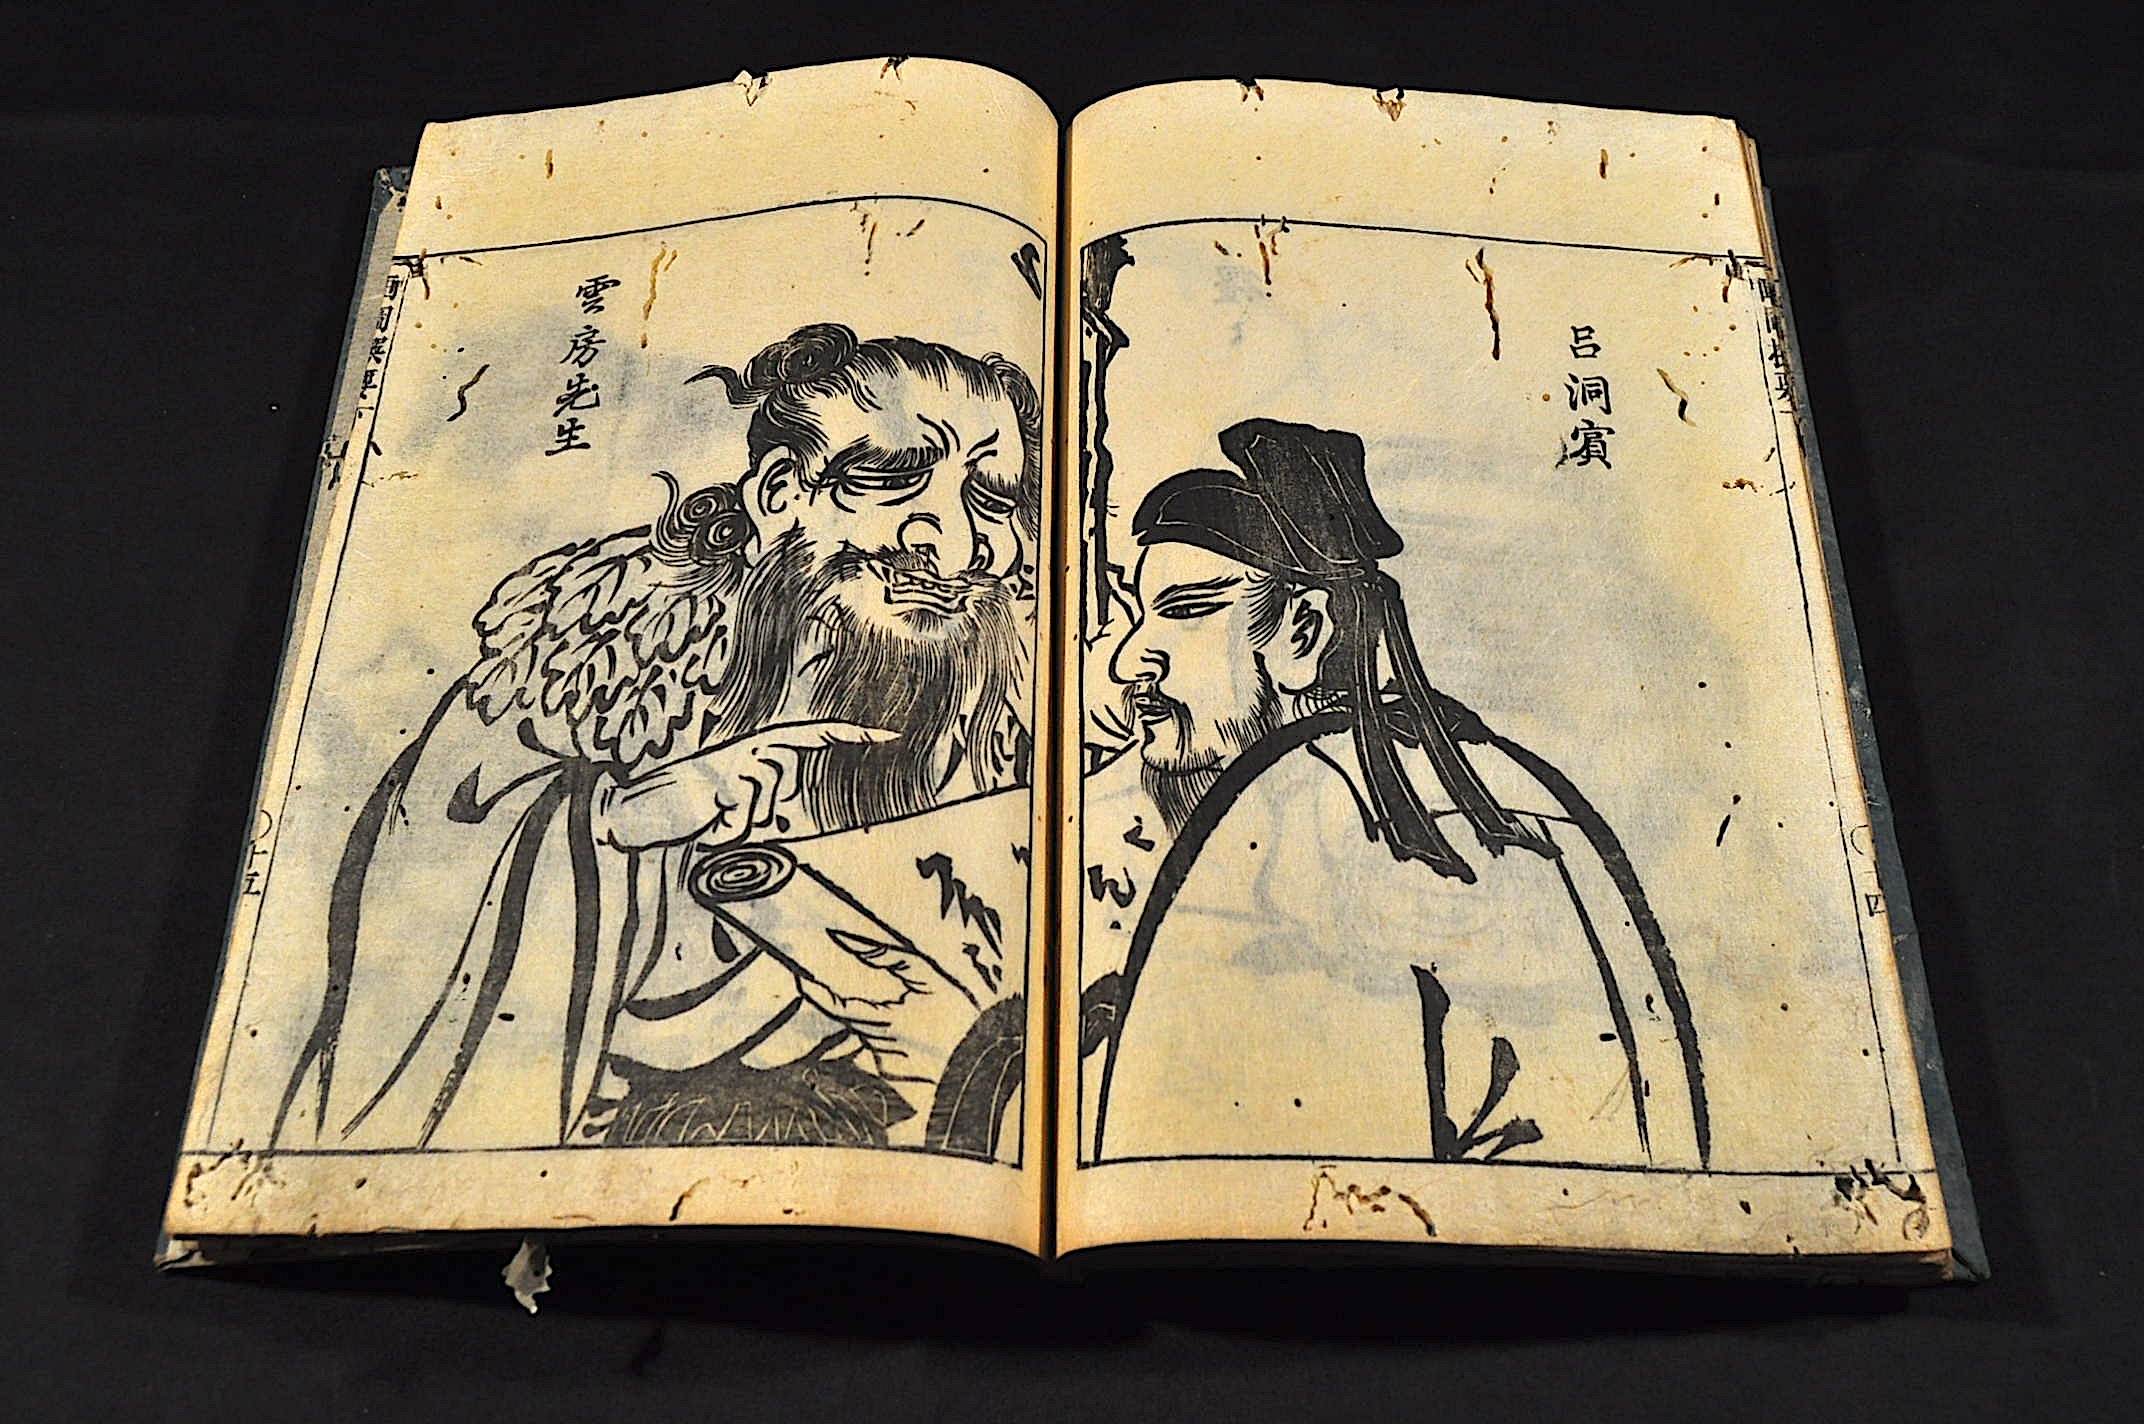 呂洞賓
雲房先生
十五
四